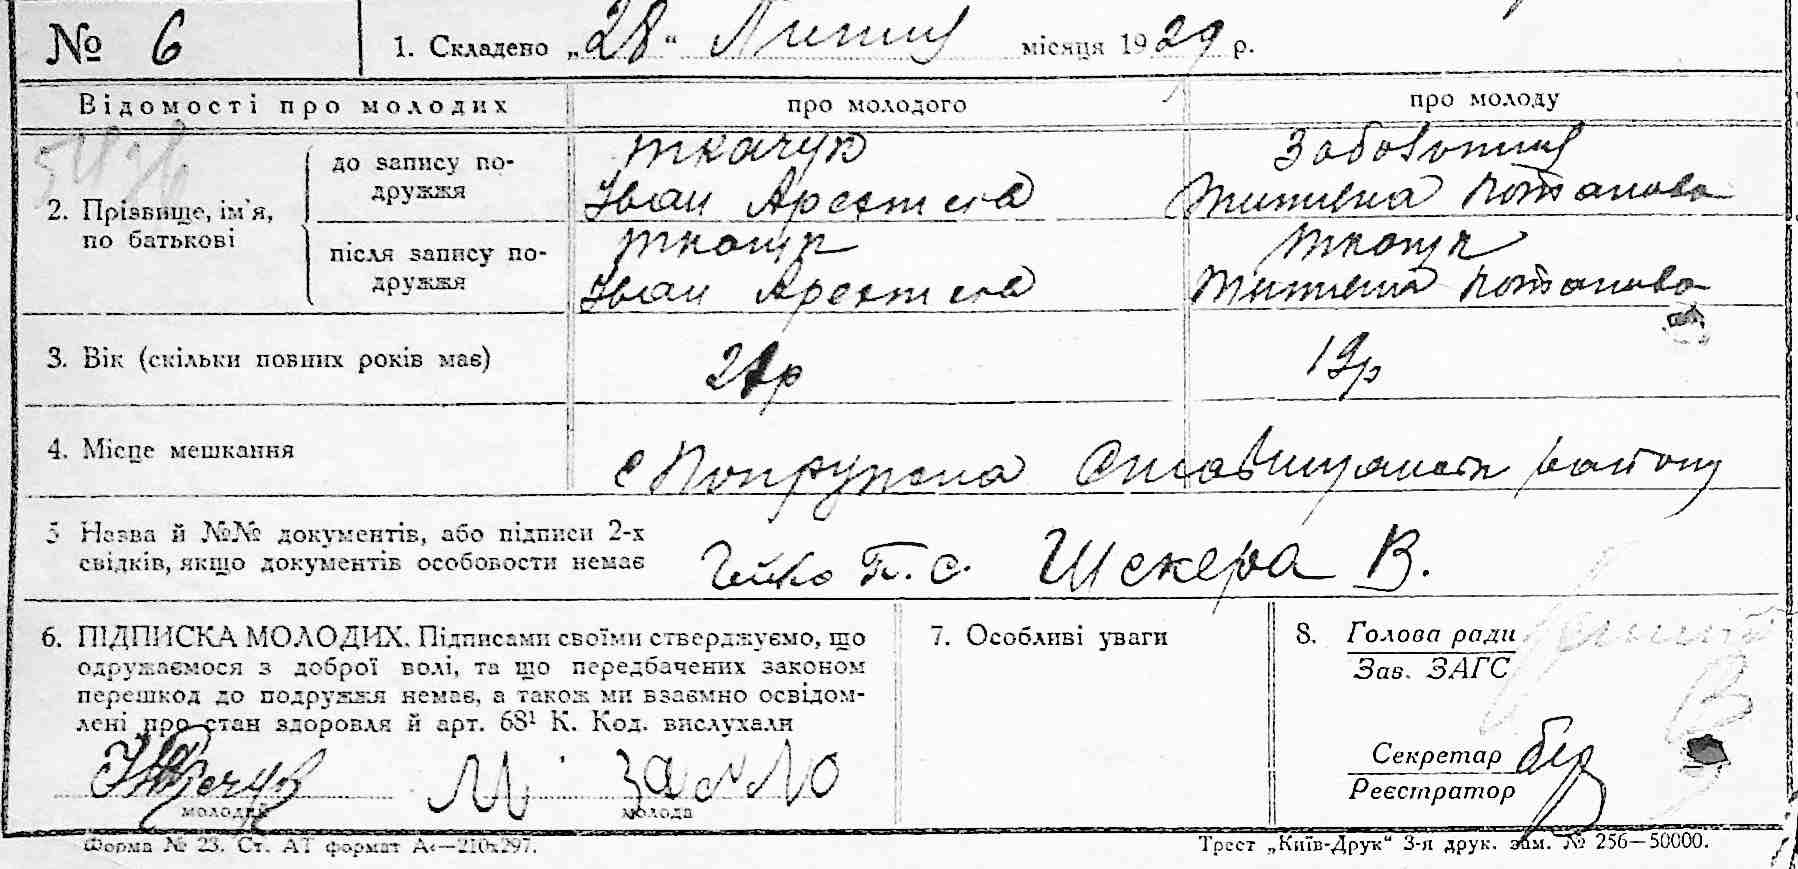 № 6
1. Складено „28“ Липня місяця 1929 р.
Відомості про молодих
про молодого
про молоду
2. Прізвище, ім'я, по батькові
до запису подружжя
Ткачук
Іван Арестига
Заболотня
Потапова
після запису подружжя
Ткачук
Іван Арестига
Ткачук
Потапова
3. Вік (скільки повних років має)
19р
4. Місце мешкання
с Попружна Ставищанськ району
5 Назва й №№ документів, або підписи 2-х
свідків, якщо документів особовости немає
П. С. Шкера В.
6. ПІДПИСКА МОЛОДИХ. Підписами своїми стверджуємо, що
одружаємося з доброї волі, та що передбачених законом
перешкод до подружжя немає, а також ми взаємно освідом-
лені про стан здоровля й арт. 68¹ К. Код. вислухали
молодий
молода
7. Особливі уваги
8. Голова ради
Зав. ЗАГС
Секретар
Реєстратор
Форма № 23. Ст. АТ формат А₄—210х297.
Трест „Київ-Друк“ 3-я друк. зам. № 256—50000.